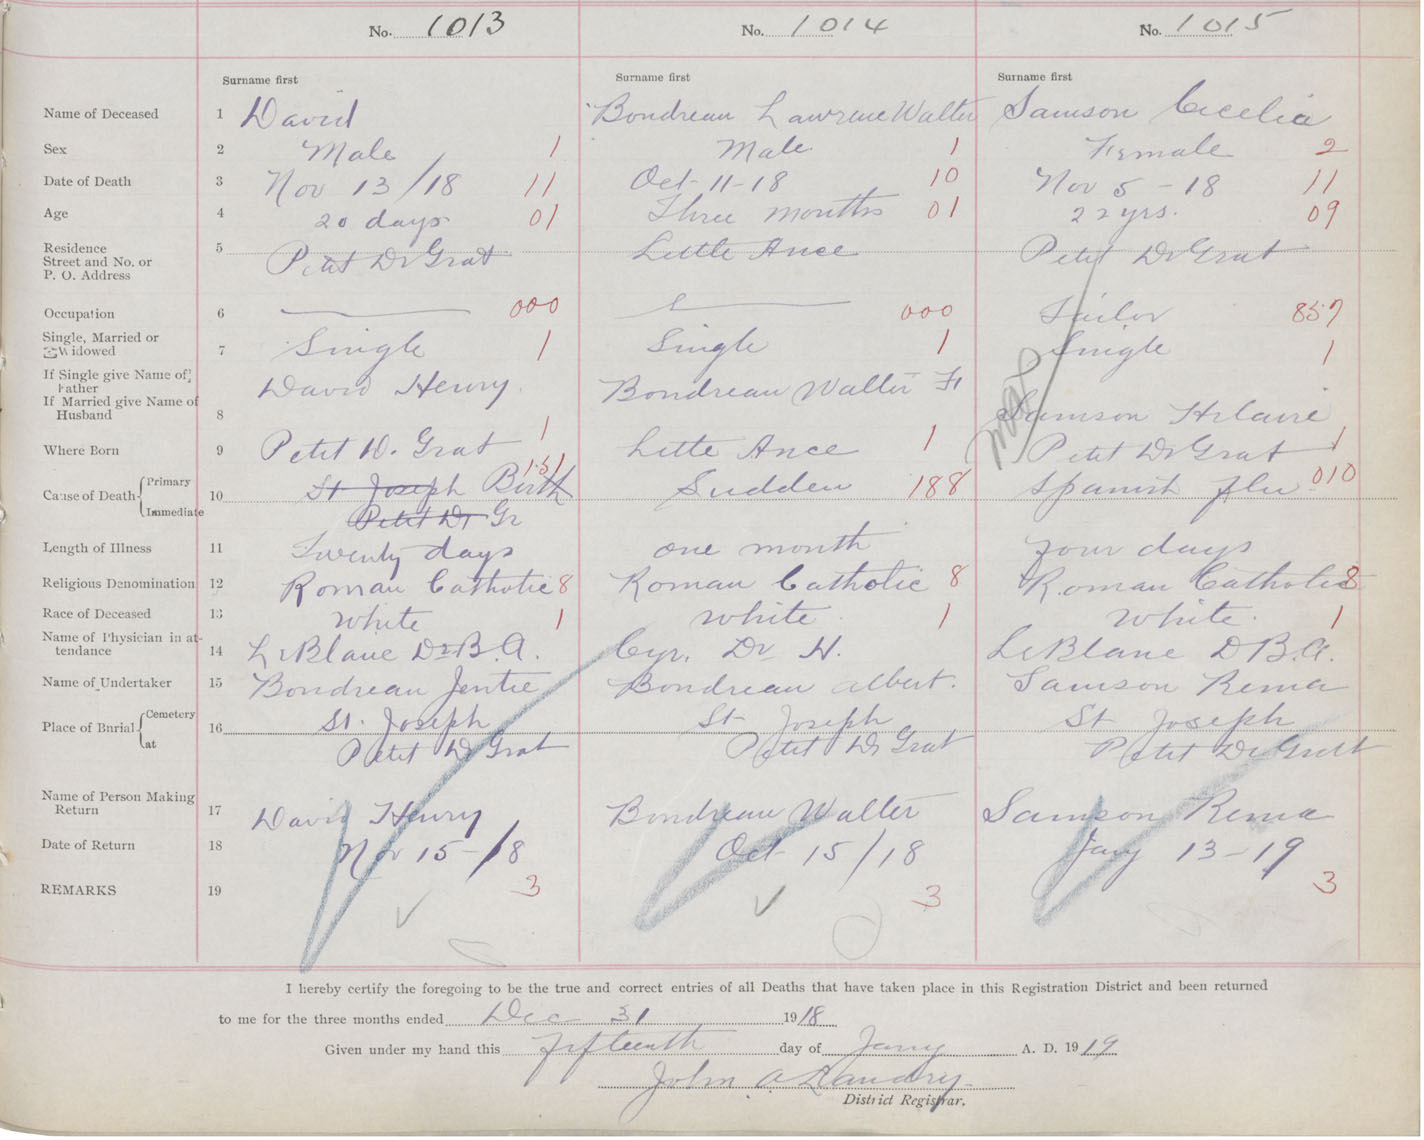 No. 1013 No. 1014 No. 1015
Surname first Surname first Surname first
Name of Deceased 1 David Boudreau Lawrence Walter Samson Cecelia
Sex 2 Male 1 Male 1 Female 2
Date of Death 3 Nov 13/18 11 Oct-11-18 10 Nov 5-18 11
Age 4 20 days 01 Three months 01 22 yrs. 09
Residence
Street and No. or
P. O. Address 5 Petit De Grat Little Ance Petit De Grat
Occupation 6 000 000 Tailor 857
Single, Married or
Widowed 7 Single 1 Single 1 Single 1
If Single give Name of
Father David Henry. Boudreau Walter
If Married give Name of
Husband 8 Samson Hilaire
Where Born 9 Petit D. Grat 1 Little Ance 1 Petit De Grat 1
151
Cause of Death Primary 10 St Joseph Birth Sudden 188 Spanish flu 010
Immediate Petit De Gr
Length of Illness 11 Twenty days one month four days
Religious Denomination 12 Roman Catholic 8 Roman Catholic 8 Roman Catholic 8
Race of Deceased 13 White 1 White. 1 White. 1
Name of Physician in at-
tendance 14 LeBlanc Dr B.A. Cyr. Dr H. LeBlanc D B.A.
Name of Undertaker 15 Boudreau Boudreau albert. Samson Rema
Place of Burial Cemetery 16 St. Joseph St Joseph St Joseph
at Petit De Grat Petit De Grat Petit De Gratt
Name of Person Making
Return 17 David Henry Boudreau Walter Samson Rema
Date of Return 18 Nov 15-18 Oct 15/18 Jany 13-19
REMARKS 19 3 3 3
I hereby certify the foregoing to be the true and correct entries of all Deaths that have taken place in this Registration District and been returned
to me for the three months ended Dec 31 1918
Given under my hand this fifteenth day of Jany A. D. 1919
John A Landry.
District Registrar.